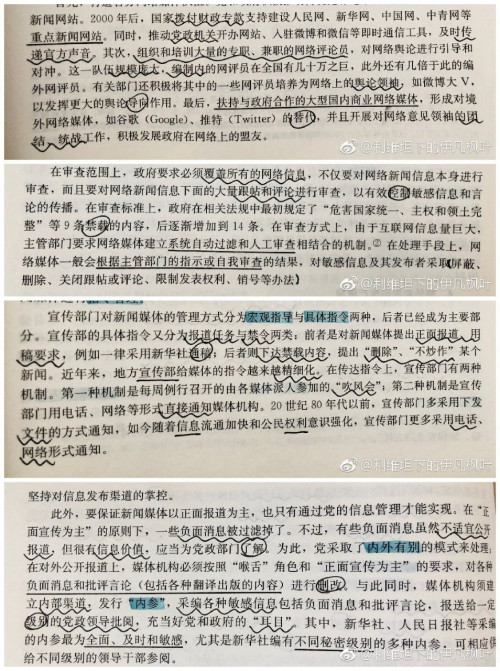 新闻网站。2000年后，国家拨付财政专款支持建设人民网、新华网、中国网、中青网等
重点新闻网站。同时，推动党政机关开办网站、入驻微博和微信等即时通信工具，及时传
递官方声音。其次，组织和培训大量的专职、兼职的网络评论员，对网络舆论进行引导和
对冲。这一队伍规模庞大，编制内的网评员在全国有几十万之巨，此外还有几倍于此的编
外网评员。有关部门还积极将其中的一些网评员培养为网络上的舆论领袖，如微博大V，
以发挥更大的舆论导向作用。最后，扶持与政府合作的大型国内商业网络媒体，形成对境
外网络媒体，如谷歌（Google）、推特（Twitter）的替代，并且开展对网络意见领袖的团
结、统战工作，积极发展政府在网络上的盟友。
@利维坦下的伊凡枫叶
在审查范围上，政府要求必须覆盖所有的网络信息，不仅要对网络新闻信息本身进行
审查，而且要对网络新闻信息下面的大量跟帖和评论进行审查，以有效控制敏感信息和言
论的传播。在审查标准上，政府在相关法规中最初规定了“危害国家统一、主权和领土完
整”等9条禁载的内容，后逐渐增加到14条。在审查方式上，由于互联网信息量巨大，
主管部门要求网络媒体建立系统自动过滤和人工审查相结合的机制。② 在处理手段上，网
络媒体一般会根据主管部门的指示或自我审查的结果，对敏感信息及其发布者采取（屏蔽、
删除、关闭跟帖或评论、限制发表权利、销号等办法）
@利维坦下的伊凡枫叶
宣传部门对新闻媒体的管理方式分为宏观指导与具体指令两种，后者已经成为主要部
分。宣传部门的具体指令又分为报道任务与禁令两类：前者是对新闻媒体提出正面报道、用
稿要求，例如一律采用新华社通稿；后者则下达禁载内容，提出“删除”、“不炒作”某个
新闻。近年来，地方宣传部给媒体的指令越来越精细化。在传达指令上，宣传部门有两种
机制。第一种机制是每周例行召开的由各媒体派人参加的“吹风会”；第二种机制是宣传
部门用电话、网络等形式直接通知媒体机构。20世纪80年代以前，宣传部门多采用下发
文件的方式通知，如今随着信息流通加快和公民权利意识强化，宣传部门更多采用电话、
网络形式通知。
@利维坦下的伊凡枫叶
坚持对信息发布渠道的掌控。
此外，要保证新闻媒体以正面报道为主，也只有通过党的信息管理才能实现。在“正
面宣传为主”的原则下，一些负面消息被过滤掉了。不过，有些负面消息虽然不适宜公开
报道，但很有信息价值，应当为党政部门了解。为此，党采取了内外有别的模式来处理：
在对外公开报道上，媒体机构必须按照“喉舌”角色和“正面宣传为主”的要求，对各种
负面消息和批评言论（包括各种翻译出版的内容）进行删改。与此同时，媒体机构须建
立内部渠道，发行“内参”，采编各种敏感信息包括负面消息和批评言论，报送给一定
级别的党政领导批阅，充当好党和政府的“耳目”。其中，新华社、人民日报社等采编
的内参最为全面、及时和敏感，尤其是新华社编有不同秘密级别的多种内参，可相应供
给不同级别的领导干部参阅。
@利维坦下的伊凡枫叶